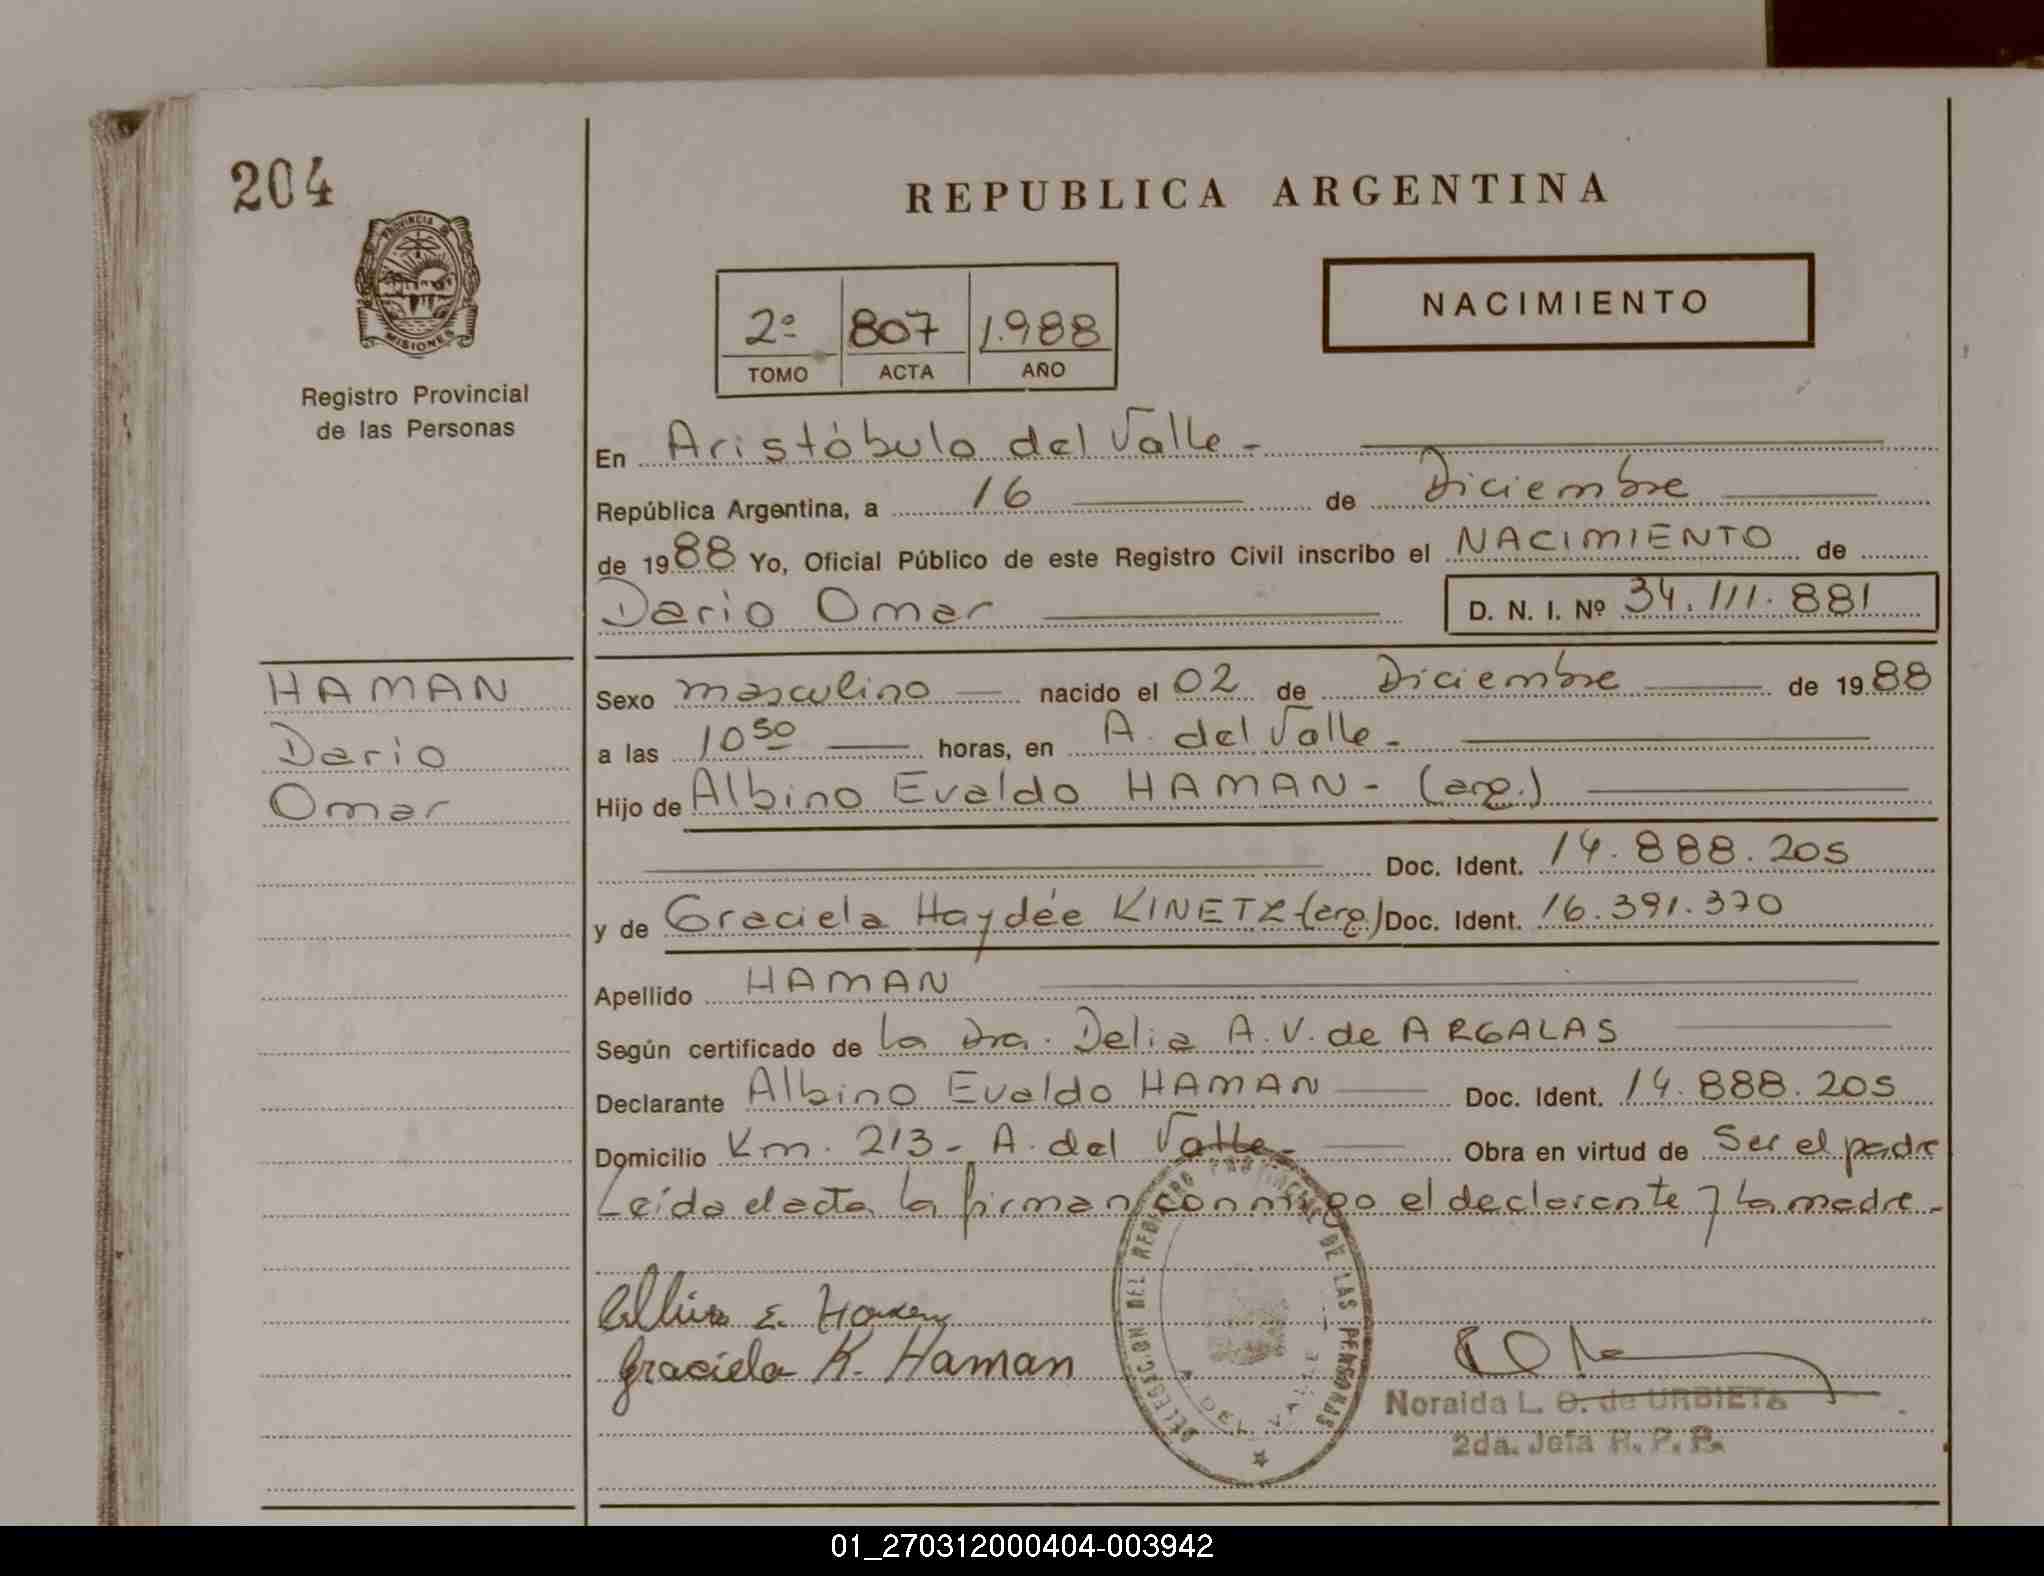 204
REPUBLICA ARGENTINA
PROVINCIA DE
MISIONES
Registro Provincial
de las Personas
2º 807 1.988
TOMO ACTA AÑO
NACIMIENTO
En Aristóbulo del Valle -
República Argentina, a 16 de Diciembre
de 1988 Yo, Oficial Público de este Registro Civil inscribo el NACIMIENTO de
Dario Omar D. N. I. Nº 34.111.881
HAMAN
Dario
Omar
Sexo masculino nacido el 02 de Diciembre de 1988
a las 10 50 horas, en A. del Valle -
Hijo de Albino Evaldo HAMAN - (arg.)
Doc. Ident. 14.888.205
y de Graciela Haydée KINETZ (arg.) Doc. Ident. 16.391.370
Apellido HAMAN
Según certificado de la Dra. Delia A. V. de ARGALAS
Declarante Albino Evaldo HAMAN Doc. Ident. 14.888.205
Domicilio Km. 213 - A. del Valle - Obra en virtud de Ser el padre
Leída el acta la firman conmigo el declarante y la madre -
Albino E. Haman
Graciela K. Haman
DELEGACION DEL REGISTRO PROVINCIAL DE LAS PERSONAS
A. DEL VALLE
Noraida L. O. de URBIETA
2da. Jefa R. P. P.
01_270312000404-003942